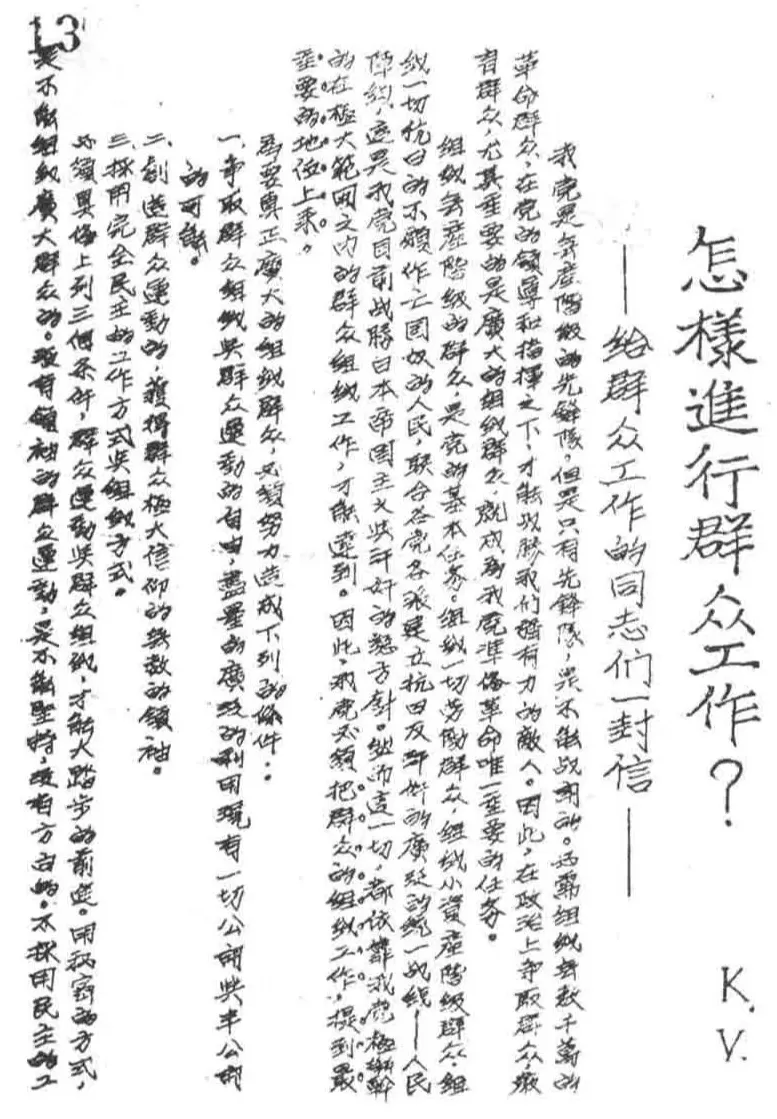 13
怎樣進行群众工作？
——給群众工作的同志们一封信——
K.V.
我党是無產階級的先鋒隊。但是只有先鋒隊，是不能战勝的。必需組織無数千萬的
革命群众，在党的領導和指揮之下，才能战勝我们暫有力的敵人。因此，在政治上争取群众，教
育群众，尤其重要的是廣大的組織群众，就成為我党準俻革命唯一重要的任务。
組織無產階級的群众，是党的基本任务。組織一切劳動群众，組織小資產階級群众，組
織一切抗日的不願作亡国奴的人民联合各党各派建立抗日反奸的廣泛的統一战线——人民
陣线，這是我党目前战勝日本帝国主义與汗奸的總方針。然而這一切，都依靠我党極艱幹
的在極大範囲之内的群众組織工作，才能達到。因此，我党必須把群众的組織工作，提到最
重要的地位上来。
為要真正廣大的組織群众，必須努力造成下列的條件：
一、争取群众組織與群众運動的自由，盡量的廣泛的利用現有一切公開與半公開
的可能。
二、創造群众運動的，獲得群众極大信仰的無数的領袖。
三、採用完全民主的工作方式與組織方式。
必須具俻上列三個条件，群众運動與群众組織，才能大踏步的前進。用秘密的方式，
是不能組織廣大群众的。没有領袖的群众運動，是不能堅持，没有方向的。不採用民主的工